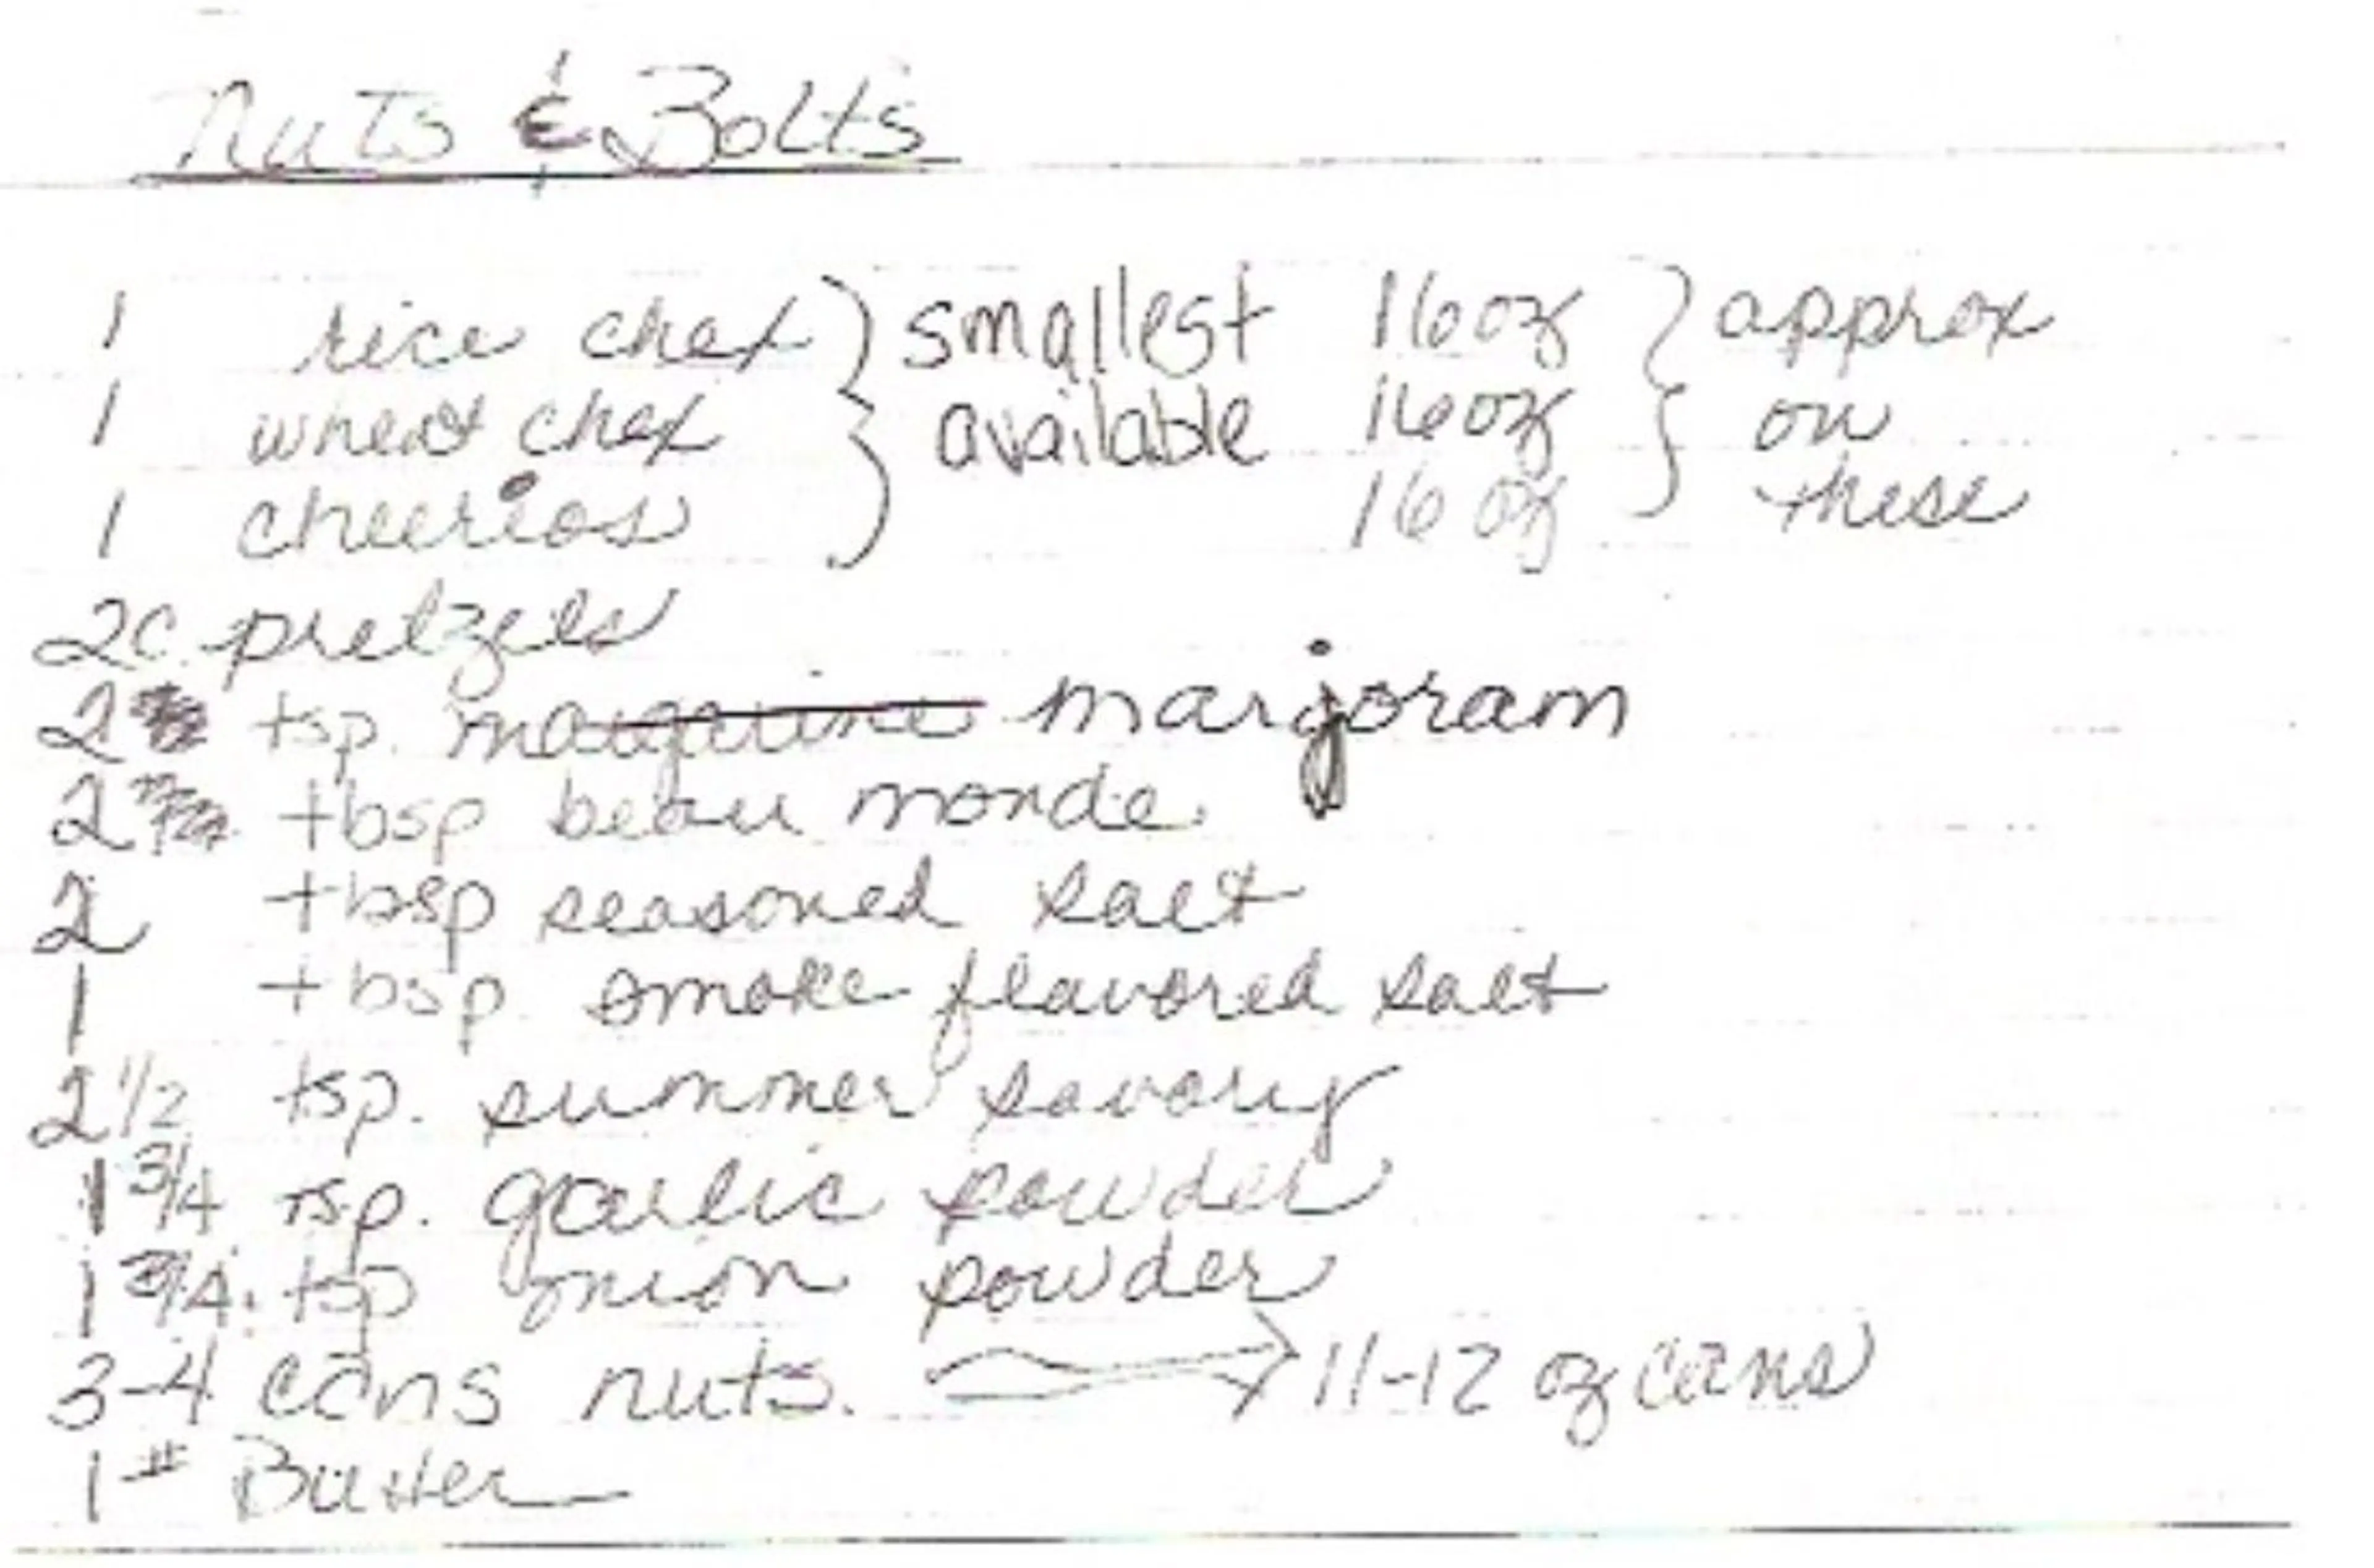 Nuts & Bolts
1 rice chex } smallest 16 oz } approx
1 wheat chex } available 16 oz } on
1 cheerios } 16 oz } these
2c. pretzels
2 tsp. margarine marjoram
2 tbsp beau monde
2 tbsp seasoned salt
1 tbsp. smoke flavored salt
2 1/2 tsp. summer savory
1 3/4 tsp. garlic powder
1 3/4 tsp onion powder
3-4 cans nuts. → 11-12 oz cans
1 # Butter